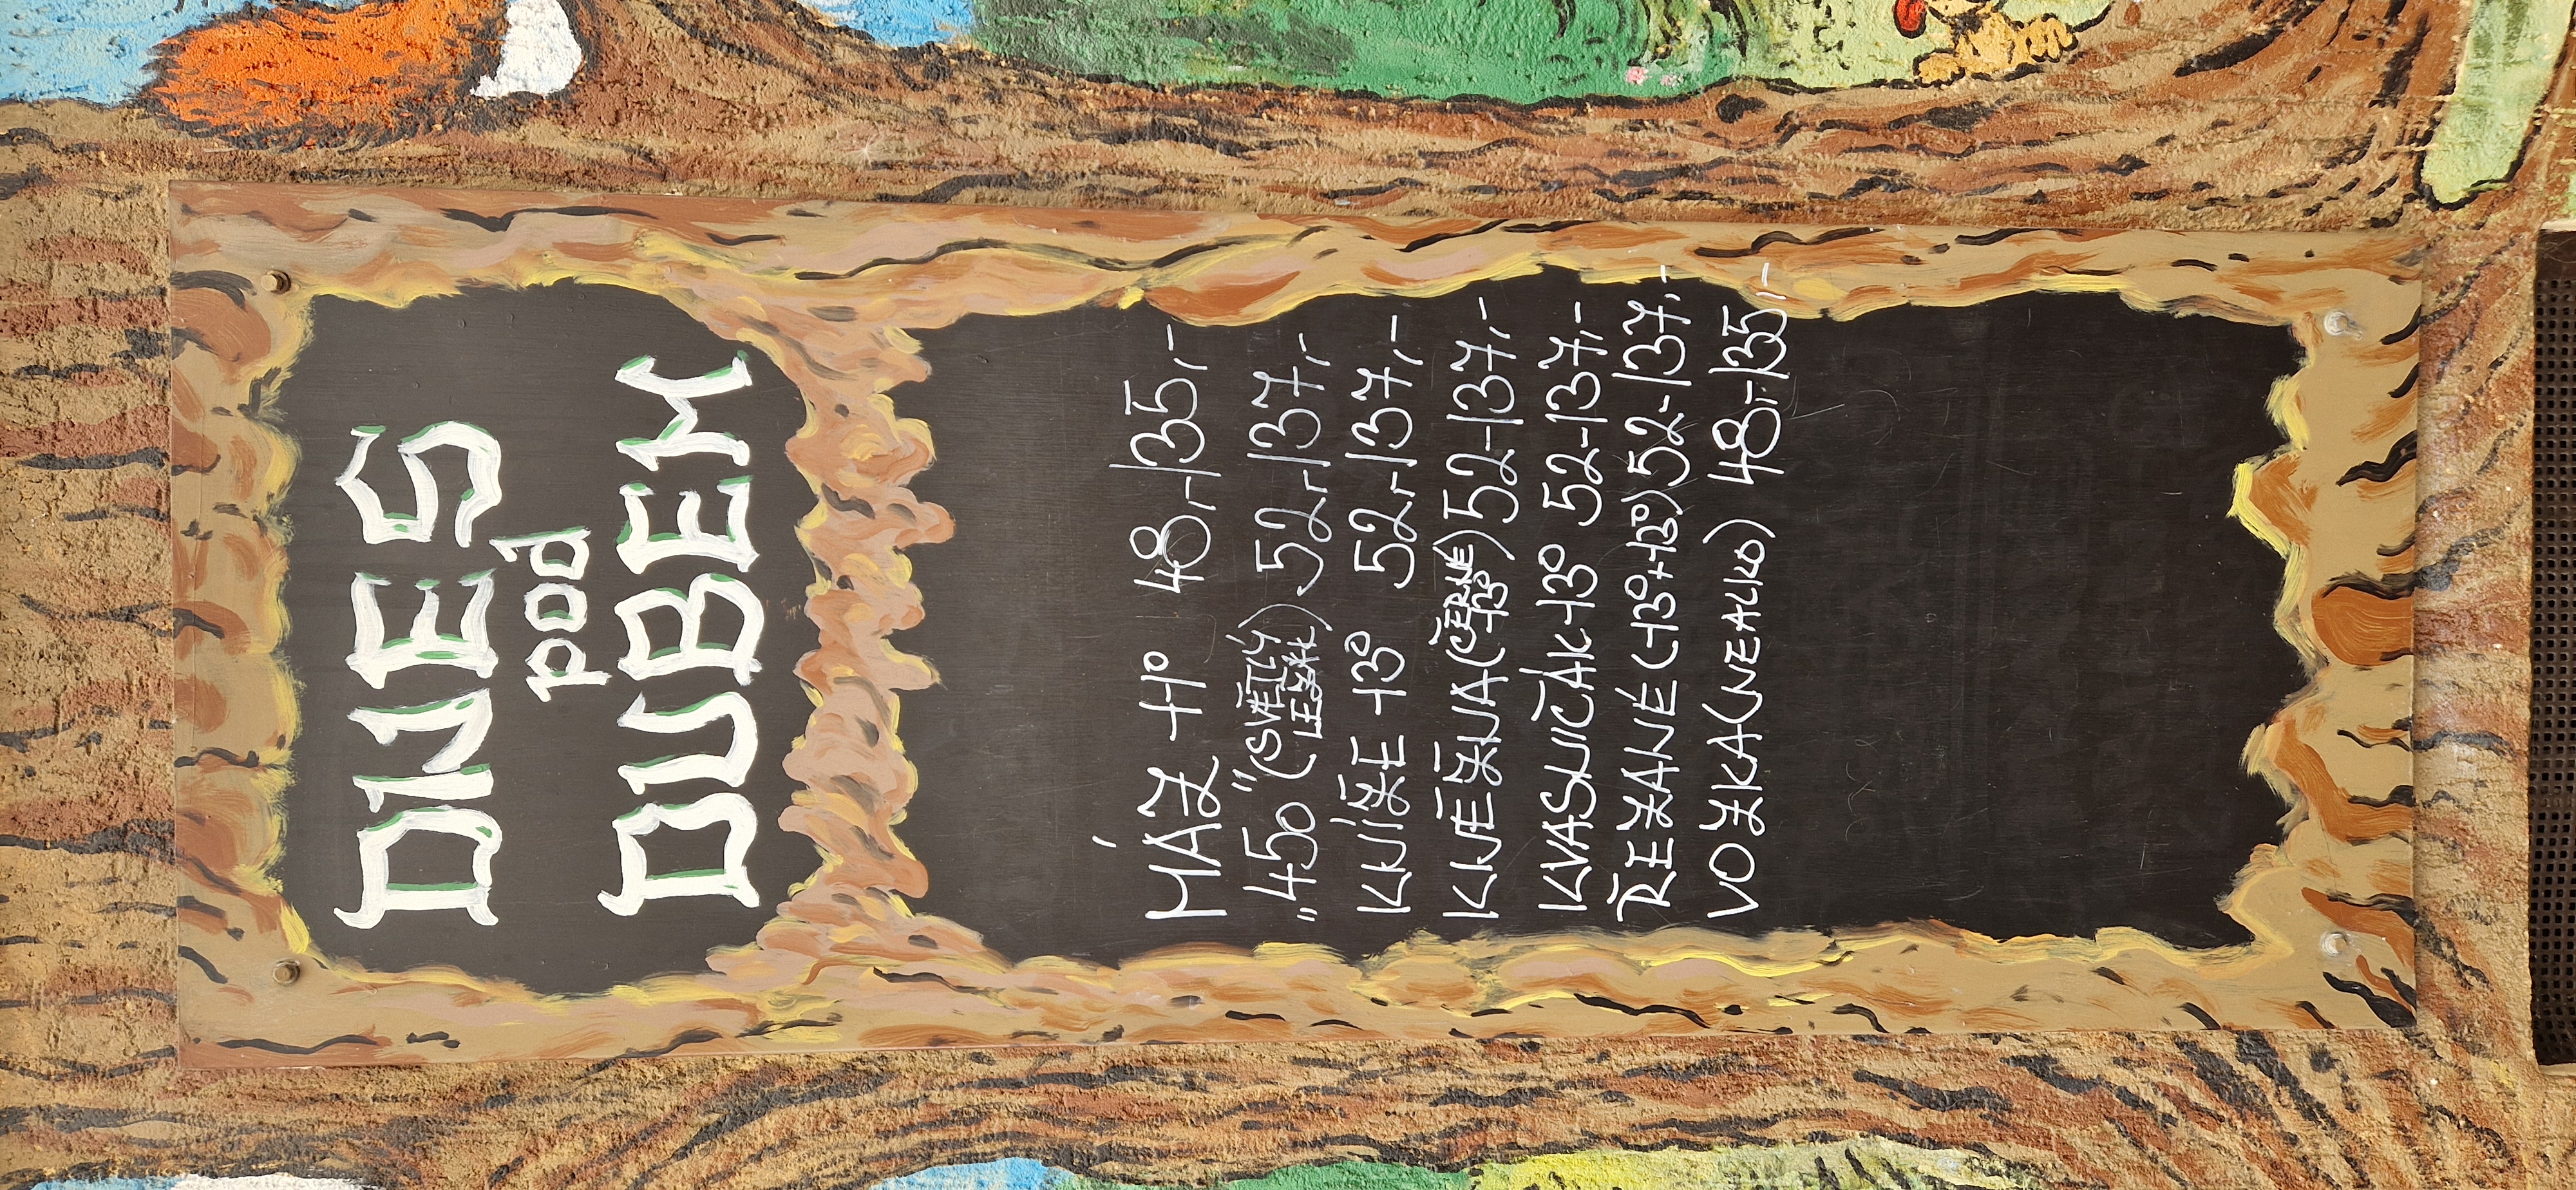 DNES
pod
DUBEM
MÁZ 11° 48,-135,-
„450" (SVĚTLÝ LEŽÁK) 52,-137,-
KNÍŽE 13° 52,-137,-
KNĚŽNA (ČERNÉ 13°) 52-137,-
KVASNIČÁK 13° 52-137,-
ŘEZANÉ (13°+13°) 52-137,-
VOZKA (NEALKO) 48,-135,-